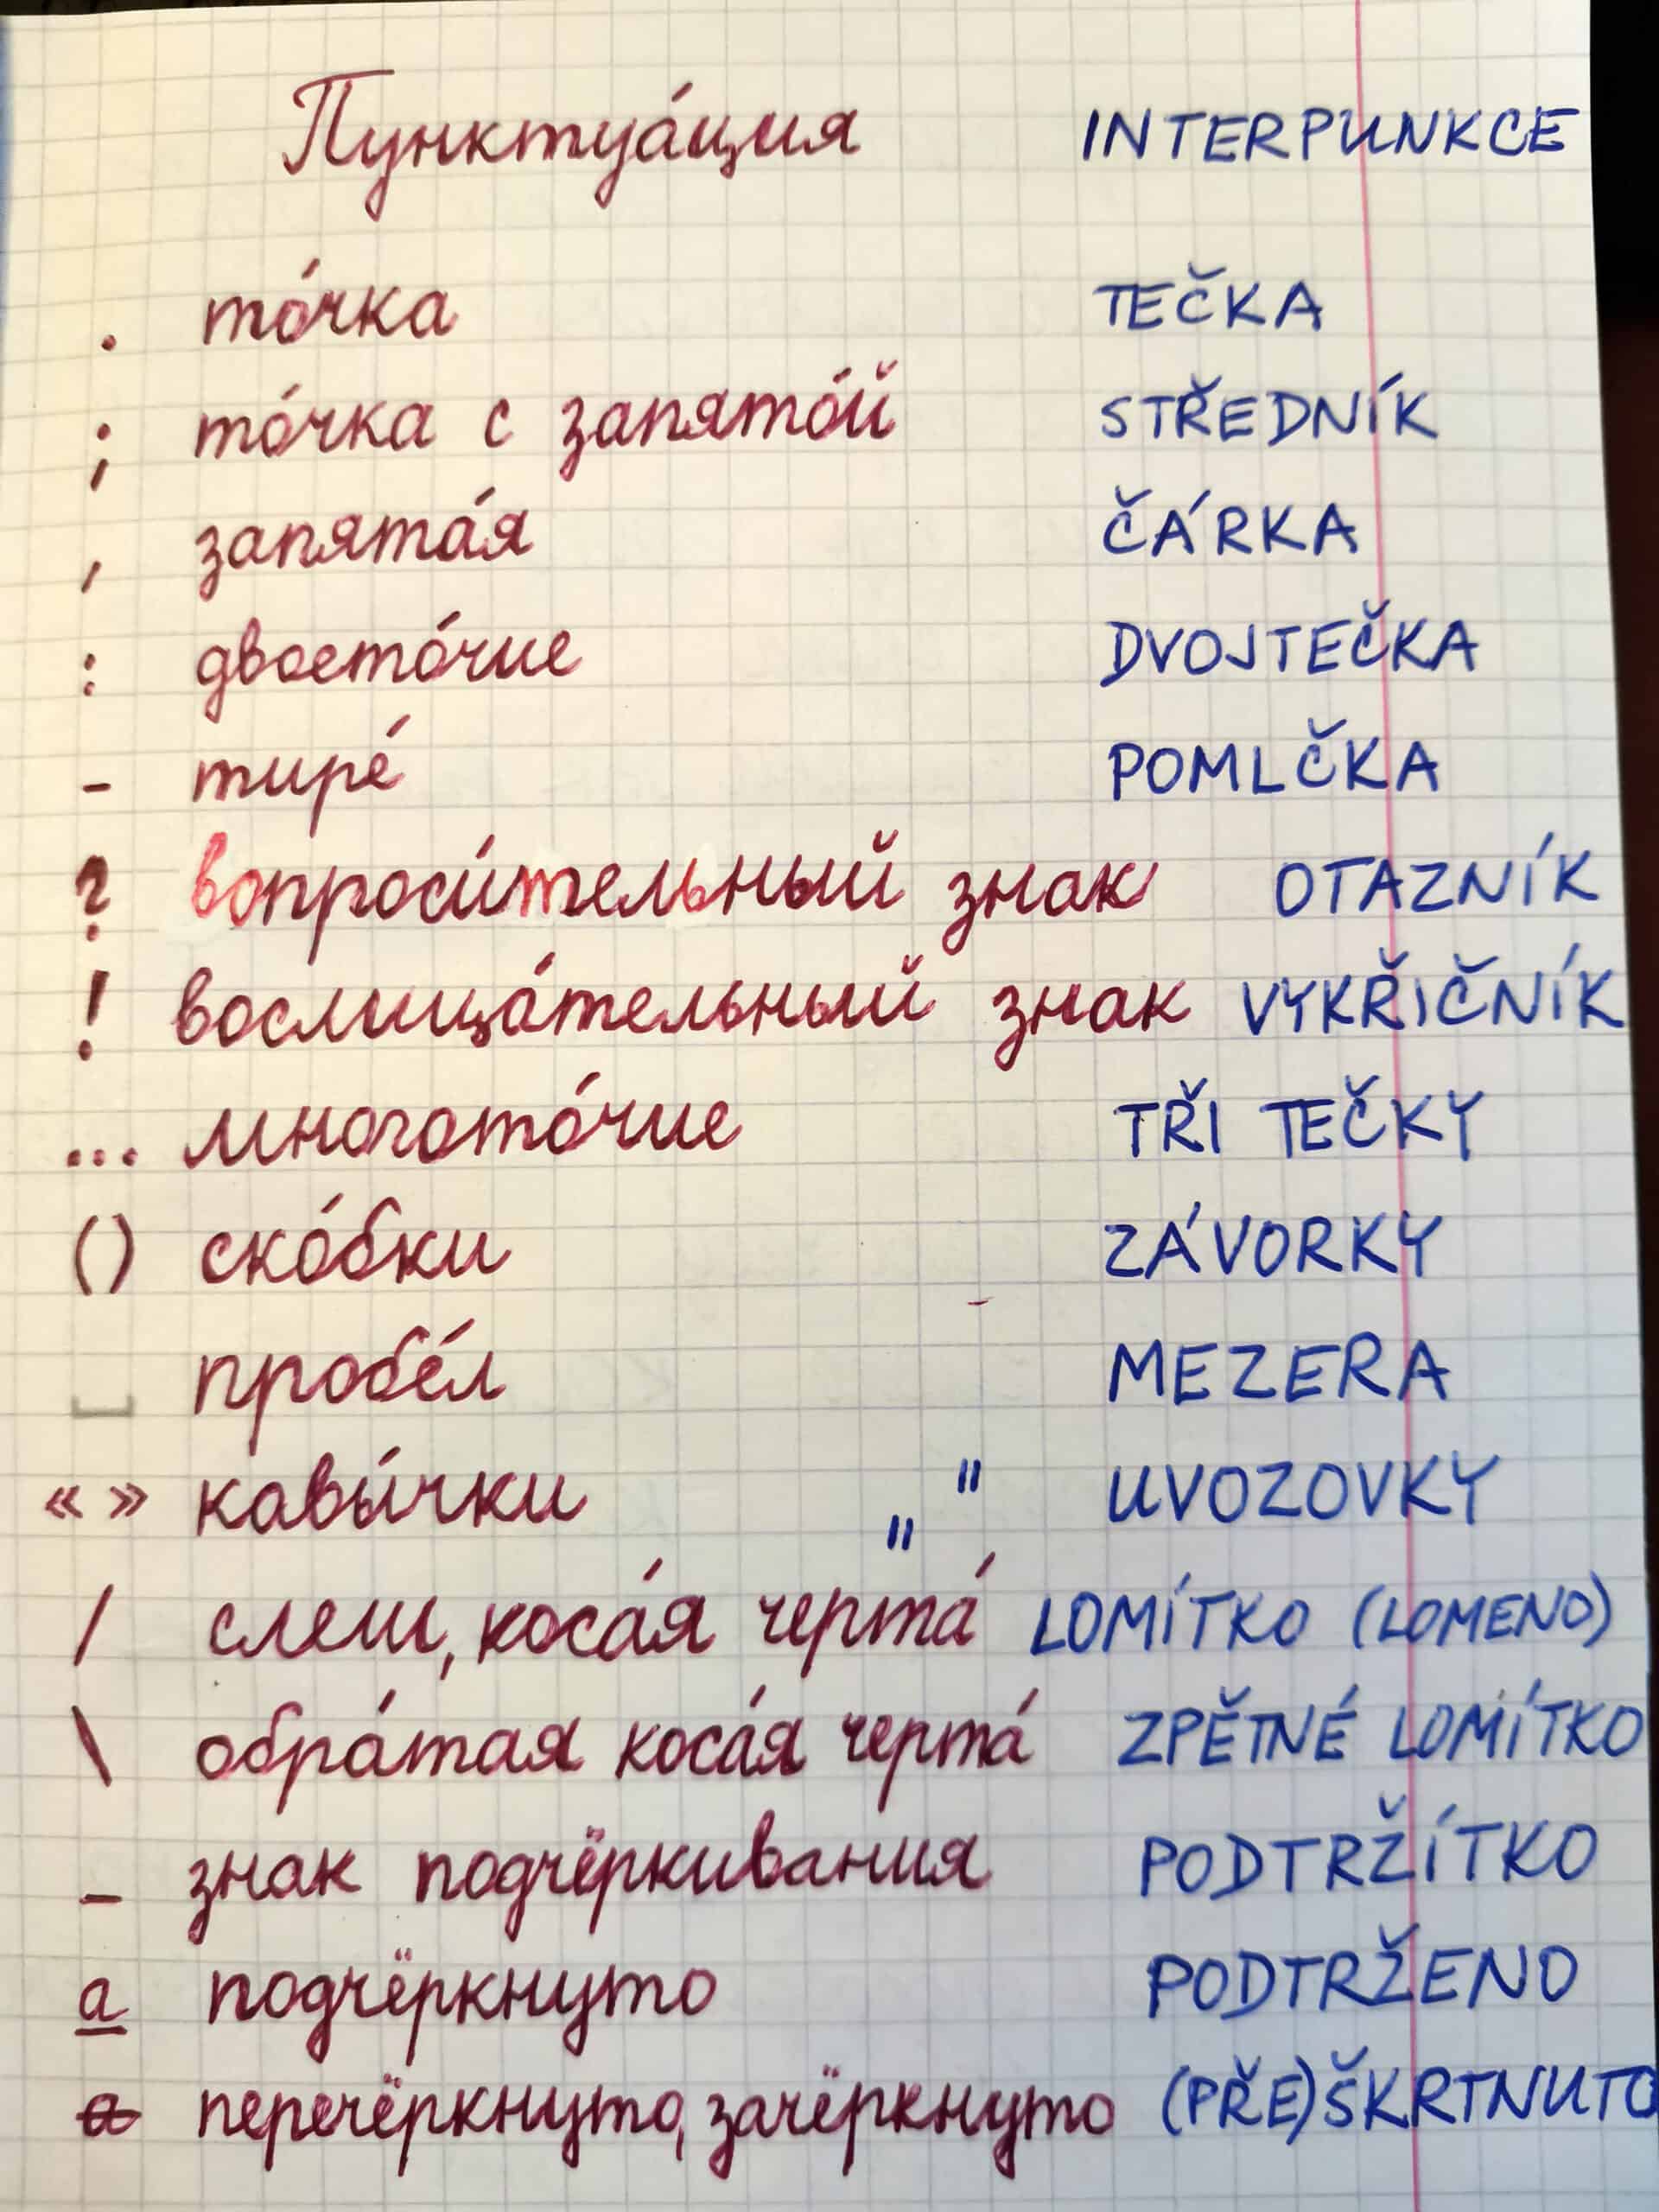 Пунктуа́ция INTERPUNKCE
. то́чка TEČKA
; то́чка с запято́й STŘEDNÍK
, запята́я ČÁRKA
: двоето́чие DVOJTEČKA
- тире́ POMLČKA
? вопроси́тельный знак OTAZNÍK
! вослица́тельный знак VYKŘIČNÍK
... многото́чие TŘI TEČKY
() ско́бки ZÁVORKY
⎵ пробе́л MEZERA
« » кавы́чки „ " UVOZOVKY
/ слеш, коса́я черта́ LOMÍTKO (LOMENO)
\ обра́тая коса́я черта́ ZPĚTNÉ LOMÍTKO
_ знак подчёркивания PODTRŽÍTKO
a подчёркнуто PODTRŽENO
a перечёркнуто, зачёркнуто (PŘE)ŠKRTNUTO